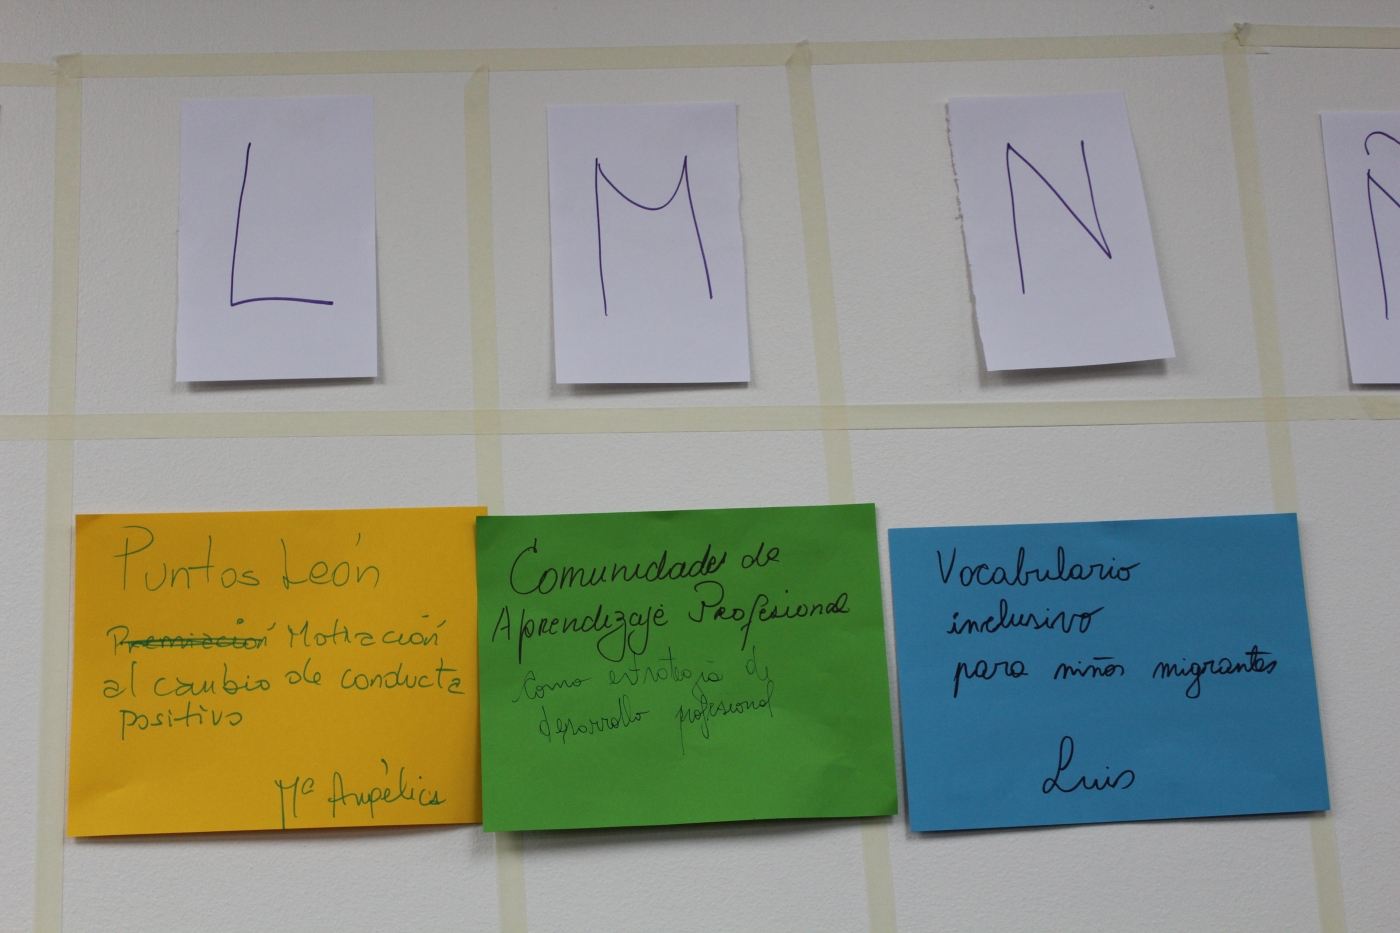 L
M
N
Ñ
Puntos León
Premiación Motivación
al cambio de conducta
positivo
Mª Angélica
Comunidades de
Aprendizaje Profesional
como estrategia de
desarrollo profesional
Vocabulario
inclusivo
para niños migrantes
Luis